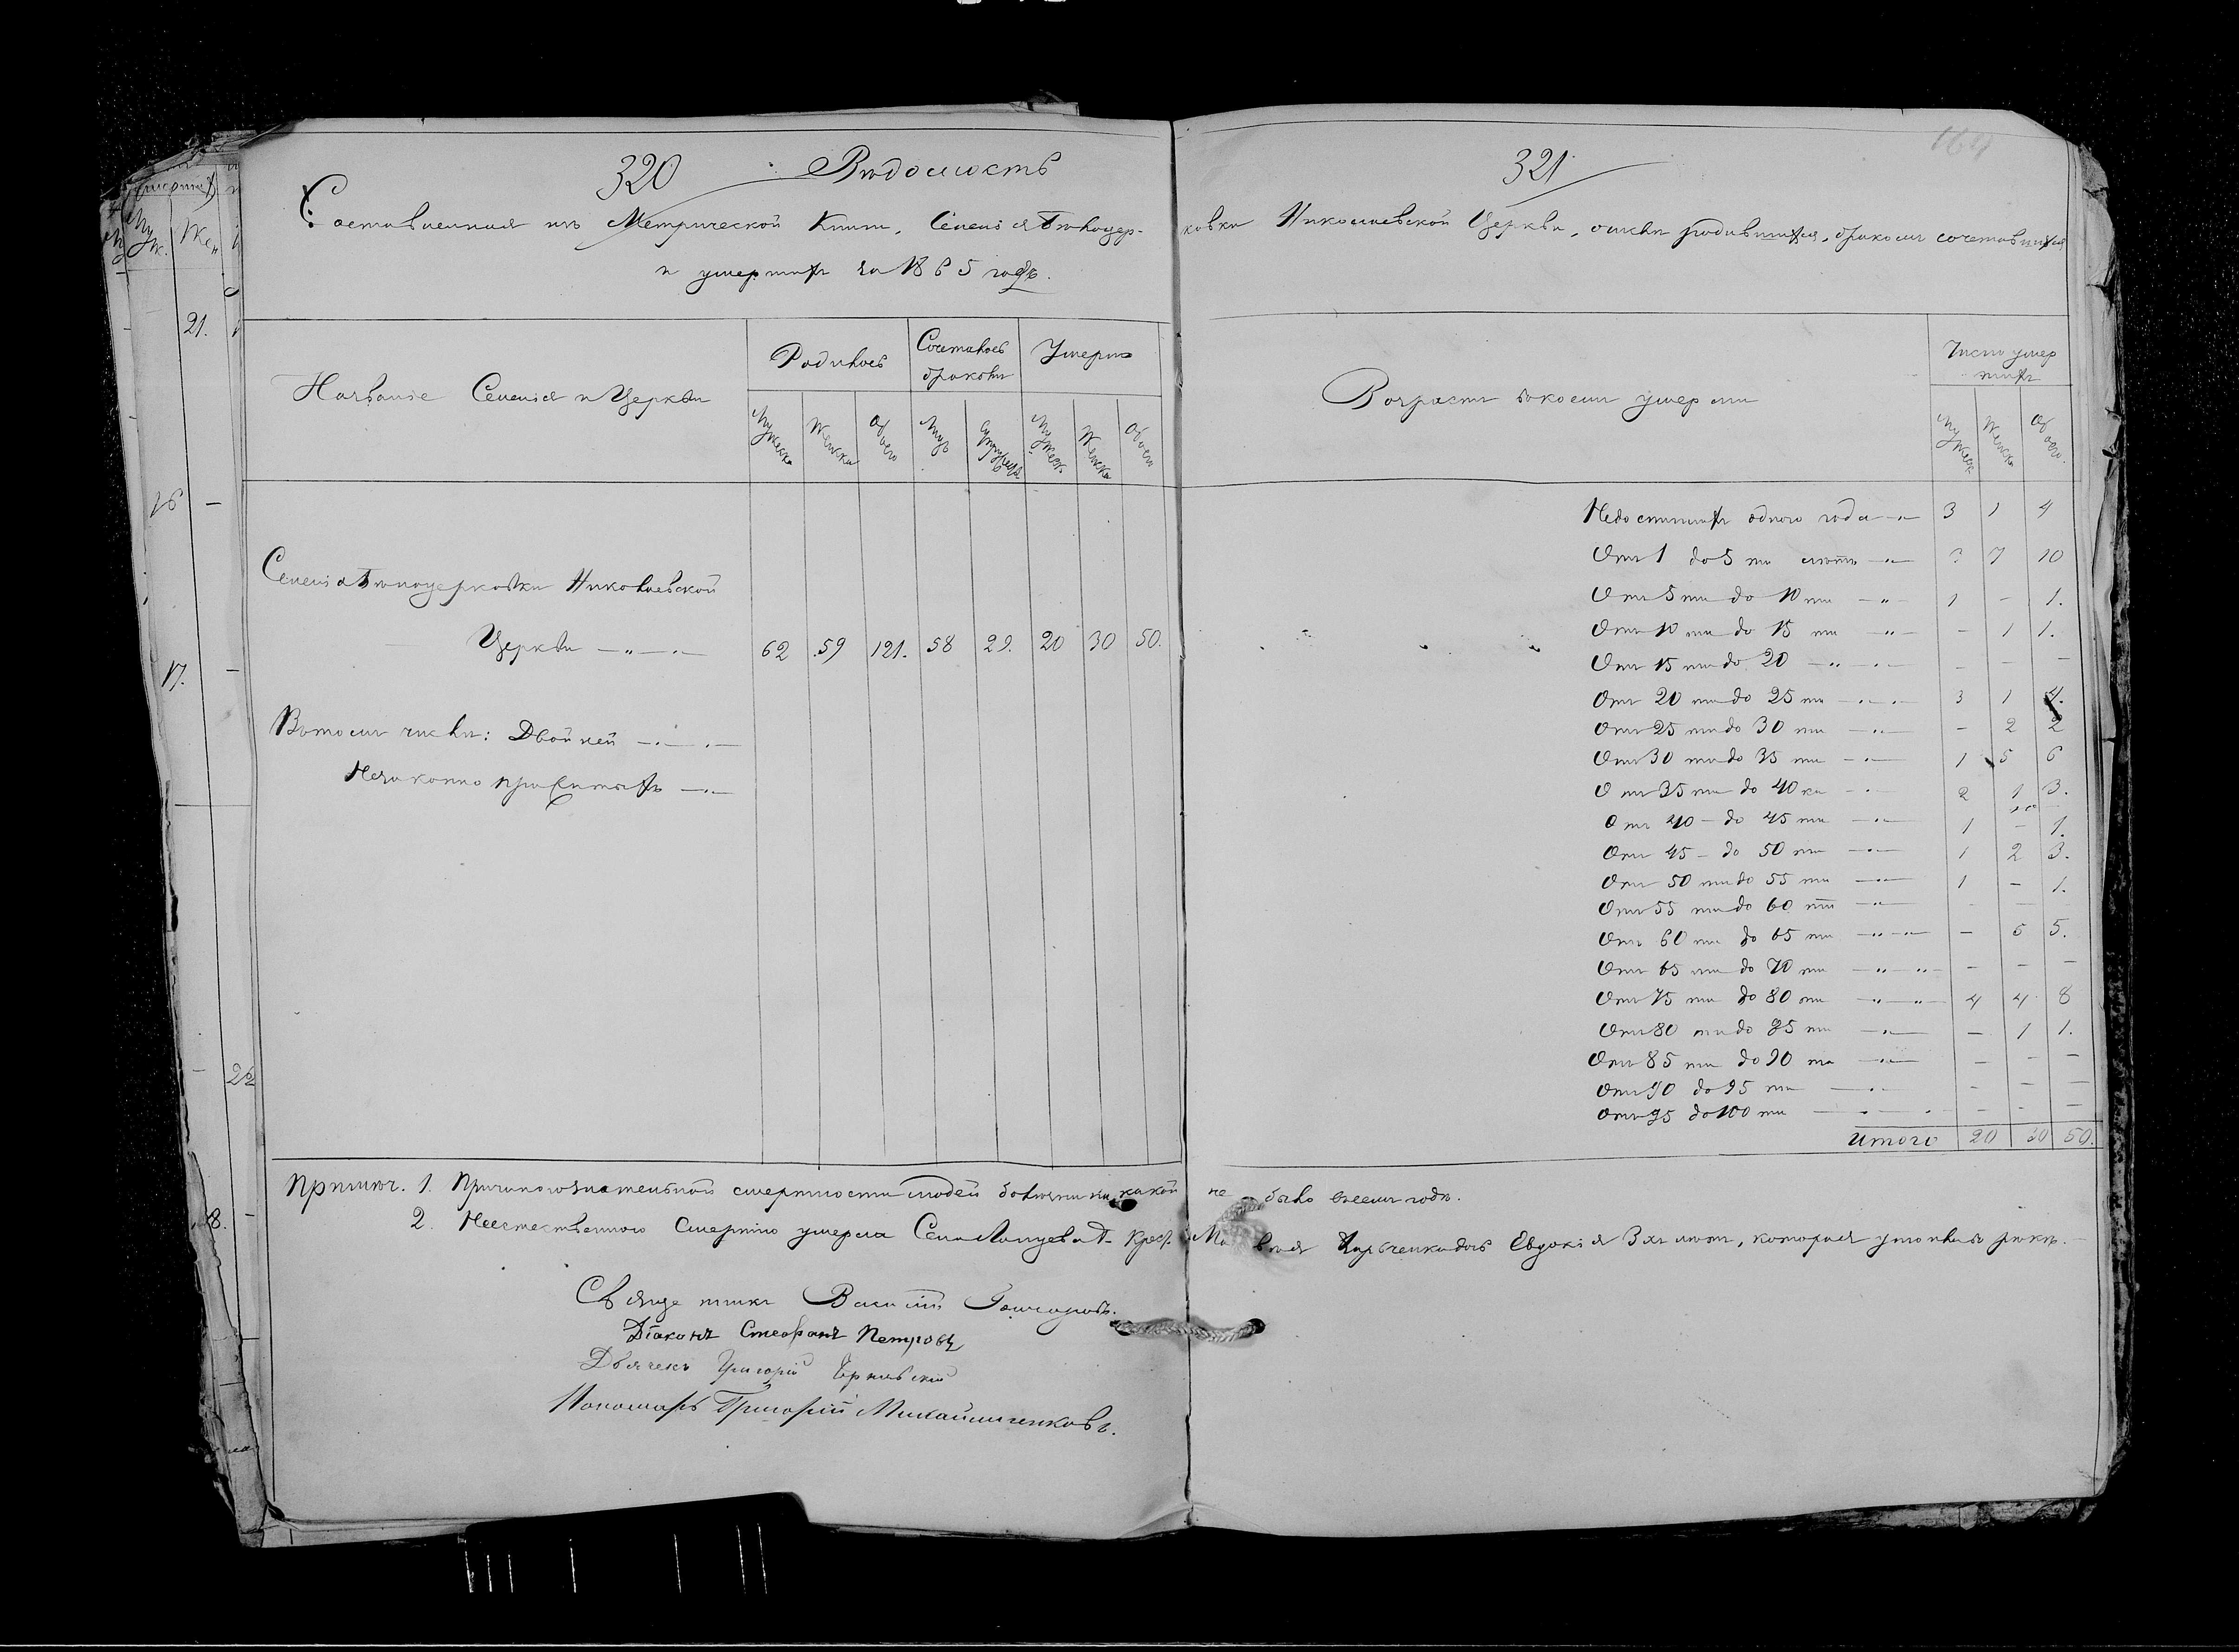 320
Вѣдомость
Составленная изъ Метрической Книги, Селенія Бѣлоцер-
и умершихъ за 1865 годъ.
Названіе Селенія и Церкви
Родилось
Сочеталось браковъ
Умерло
Мужеска
Женска
Обоего
Мужеск
Женска
Обоего
Селенія Бѣлоцерковки Николаевской
Церкви 62 59 121. 58 29. 20 30 50.
Вътомъ числѣ: Двойней
Незаконно прижитыхъ
321
164
ковки Николаевской Церкви, о числѣ родившихся, бракомъ сочетавшихся
Возрастъ вкоемъ умерли
Число умершихъ
Мужеск
Женска
Обоего
Недостигшихъ одного года 3 1 4
Отъ 1 до 5 ти лѣтъ 7 10
Отъ 5 ти до 10 ти 1 - 1.
Отъ 10 ти до 15 ти - 1 1.
Отъ 15 ти до 20 - - -
Отъ 20 ти до 25 ти 3 1 4.
Отъ 25 ти до 30 ти - 2 2
Отъ 30 ти до 35 ти 1 5 6
Отъ 35 ти до 40 ка 2 1 3.
Отъ 40 - до 45 ти 1 - 1.
Отъ 45 - до 50 ти 1 2 3.
Отъ 50 ти до 55 ти 1 - 1.
Отъ 55 ти до 60 ти - - -
Отъ 60 ти до 65 ти - 5 5.
Отъ 65 ти до 70 ти - - -
Отъ 75 ти до 80 ти 4 4 8
Отъ 80 ти до 85 ти - 1 1.
Отъ 85 ти до 90 та - - -
Отъ 90 до 95 ти - - -
Отъ 95 до 100 ти - - -
Итого 20 30 50.
Примѣч. 1. Причиною значительной смертности людей болѣзни никакой не было въсемъ годѣ.
2. Неестественною Смертію умерла Села крест. Матвея Харченка дочь Евдокія 3 хъ лѣтъ, которая утонула въ рѣкѣ.
Священникъ Василій Гончаровъ.
Діаконъ Стефанъ Петровъ
Дьячекъ Григорій
Пономарь Григорій Михайличенковъ.